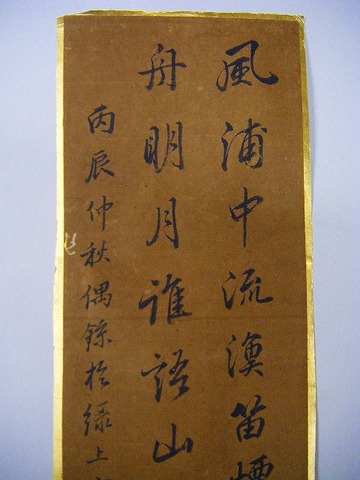 風浦中流漁笛煙
舟明月誰語山
丙辰仲秋偶錄於綠上